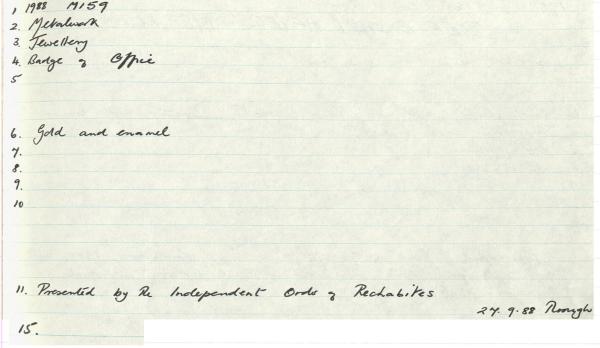 1 1988 M159
2. Metalwork
3. Jewellery
4. Badge of Office
5
6. Gold and enamel
7.
8.
9.
10
11. Presented by the Independent Order of Rechabites
27.9.88
15.